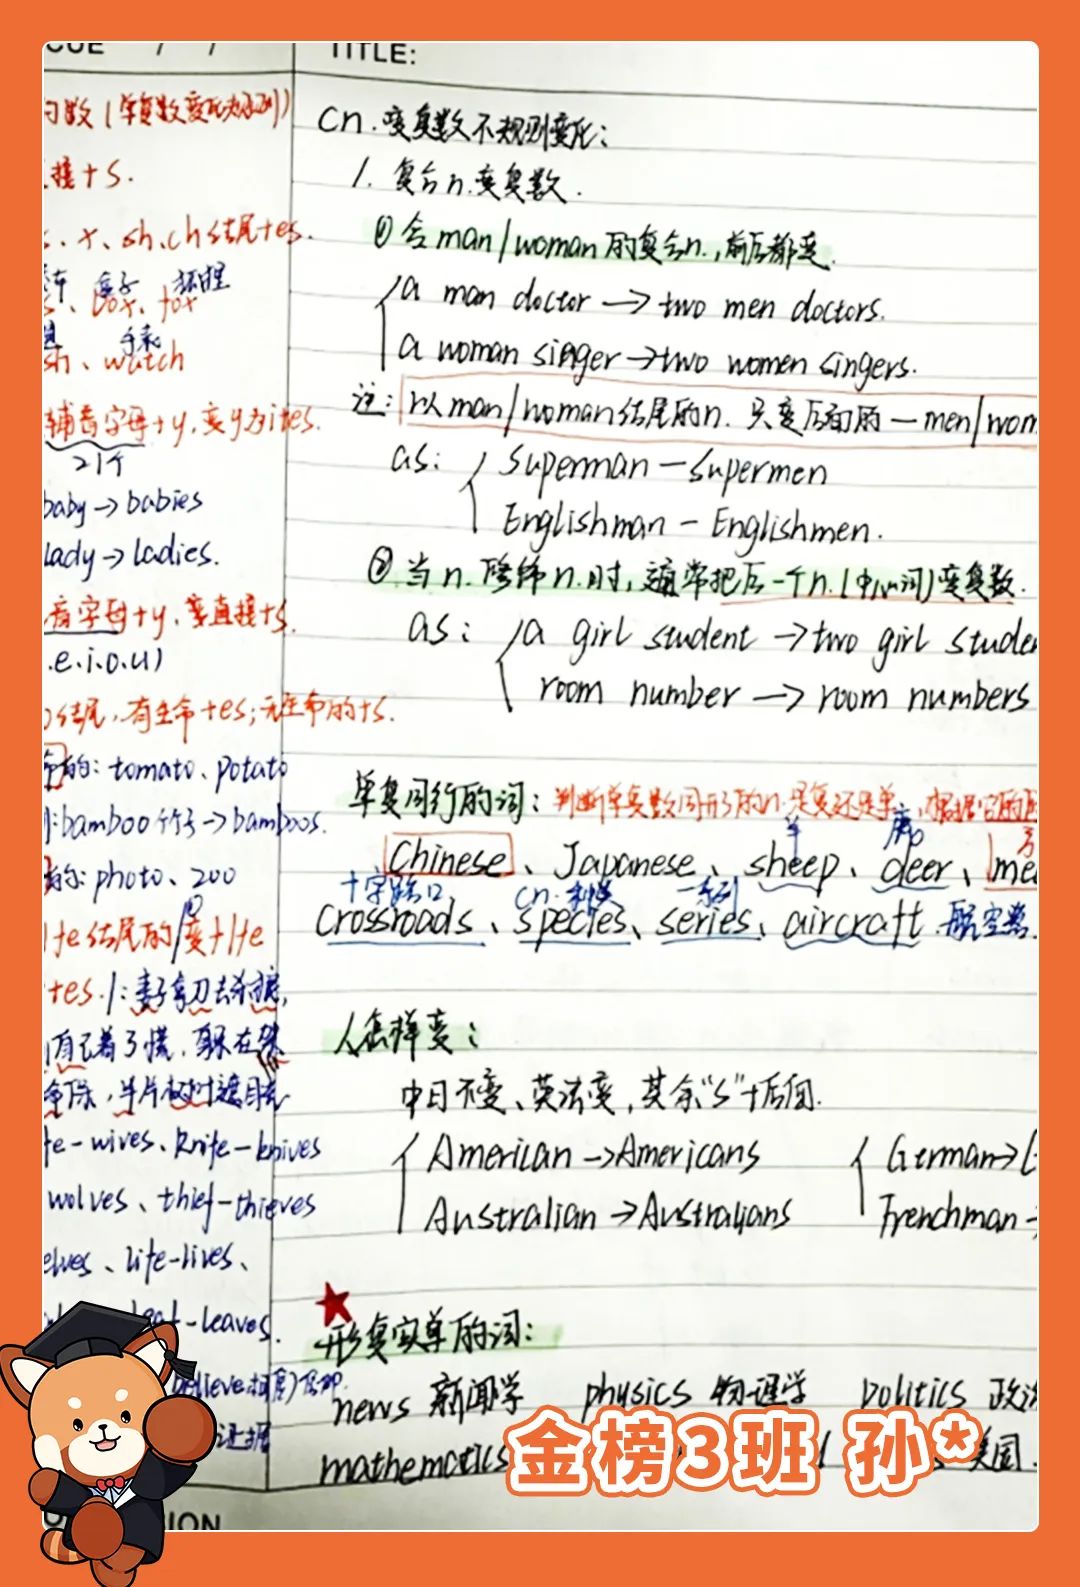 CUE / /
TITLE:
数(单复数变化规则)
接+s.
x、sh、ch结尾+es.
box、fox
sh、watch
辅音字母+y,变y为ies.
21个
baby→babies
lady→ladies.
音字母+y,直接+s.
.e.i.o.u)
o结尾,有生命+es;无生命的+s.
的:tomato、potato
:bamboo 竹子→bamboos.
的:photo、zoo
fe结尾的变
+es.
妻子拿刀去
自己着了慌,躲在
半片树叶遮目光
fe-wives、knife-knives
wolves、thief-thieves
elves、life-lives、
leaf-leaves.
believe相信)
cn.变复数不规则变化:
1.复合n.变复数.
①含man/woman的复合n.,前后都变.
a man doctor→two men doctors.
a woman singer→two women singers.
注:以man/woman结尾的n.只变后面的—men/wom
as: Superman—supermen
Englishman-Englishmen.
②当n.修饰n.时,通常把后一个n.(中心词)变复数.
as: a girl student→two girl stude
room number→room numbers
单复同行的词:判断单复数同形的n.是复还是单,根据它的
羊 鹿
Chinese、Japanese、sheep、deer、me
十字路口 cn.种类 一系列
crossroads、species、series、aircraft.航空器.
人怎样变:
中日不变、英法变,其余"s"+后面.
American→Americans German→
Australian→Australians Frenchman-
形复实单的词:
news 新闻学 physics 物理学 politics 政治
mathematics 美国.
金榜3班 孙*